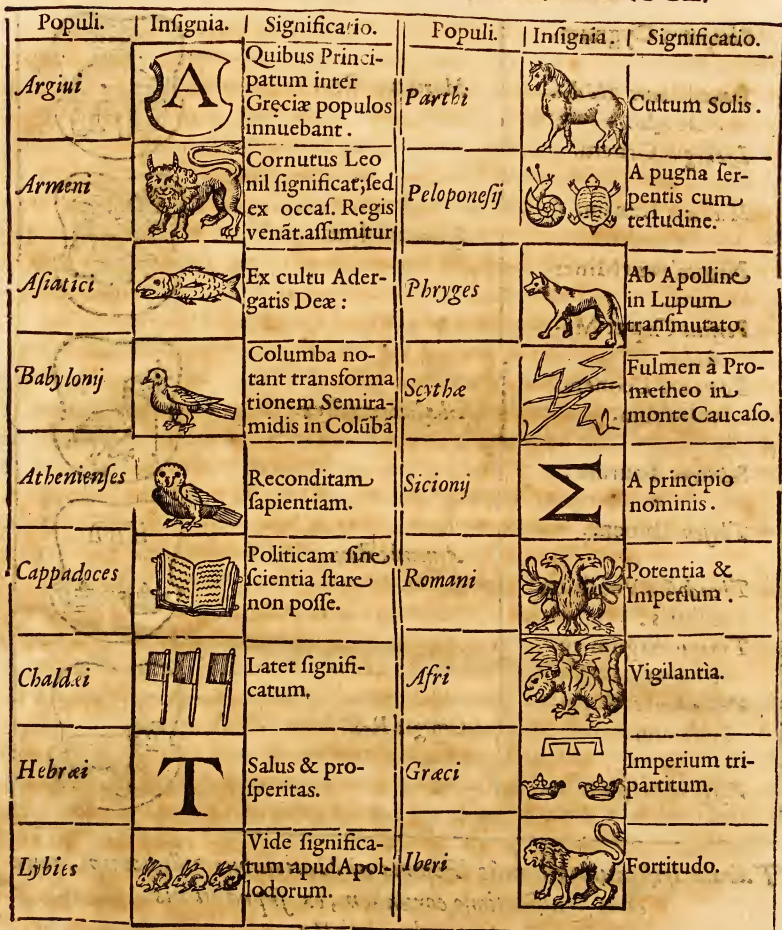 Populi. | Inſignia. | Significatio.
Argiui
A
Quibus Princi-
patum inter
Gręciæ populos
innuebant.
Armeni
Cornutus Leo
nil ſignificat; ſed
ex occaſ. Regis
venãt. aſſumitur
Aſiatici
Ex cultu Ader-
gatis Deæ:
Babylonij
Columba no-
tant transforma
tionem Semira-
midis in Colũbã
Athenienſes
Reconditam
ſapientiam.
Cappadoces
Politicam ſine
ſcientia ſtare
non poſſe.
Chaldæi
Latet ſignifi-
catum.
Hebræi
T
Salus & pro-
ſperitas.
Lybies
Vide ſignifica-
tum apud Apol-
lodorum.
Populi. | Inſignia. | Significatio.
Parthi
Cultum Solis.
Peloponeſij
A pugna ſer-
pentis cum
teſtudine.
Phryges
Ab Apolline
in Lupum
tranſmutato.
Scythæ
Fulmen à Pro-
metheo in
monte Caucaſo.
Sicionij
M
A principio
nominis.
Romani
Potentia &
Imperium.
Afri
Vigilantia.
Græci
Imperium tri-
partitum.
Iberi
Fortitudo.